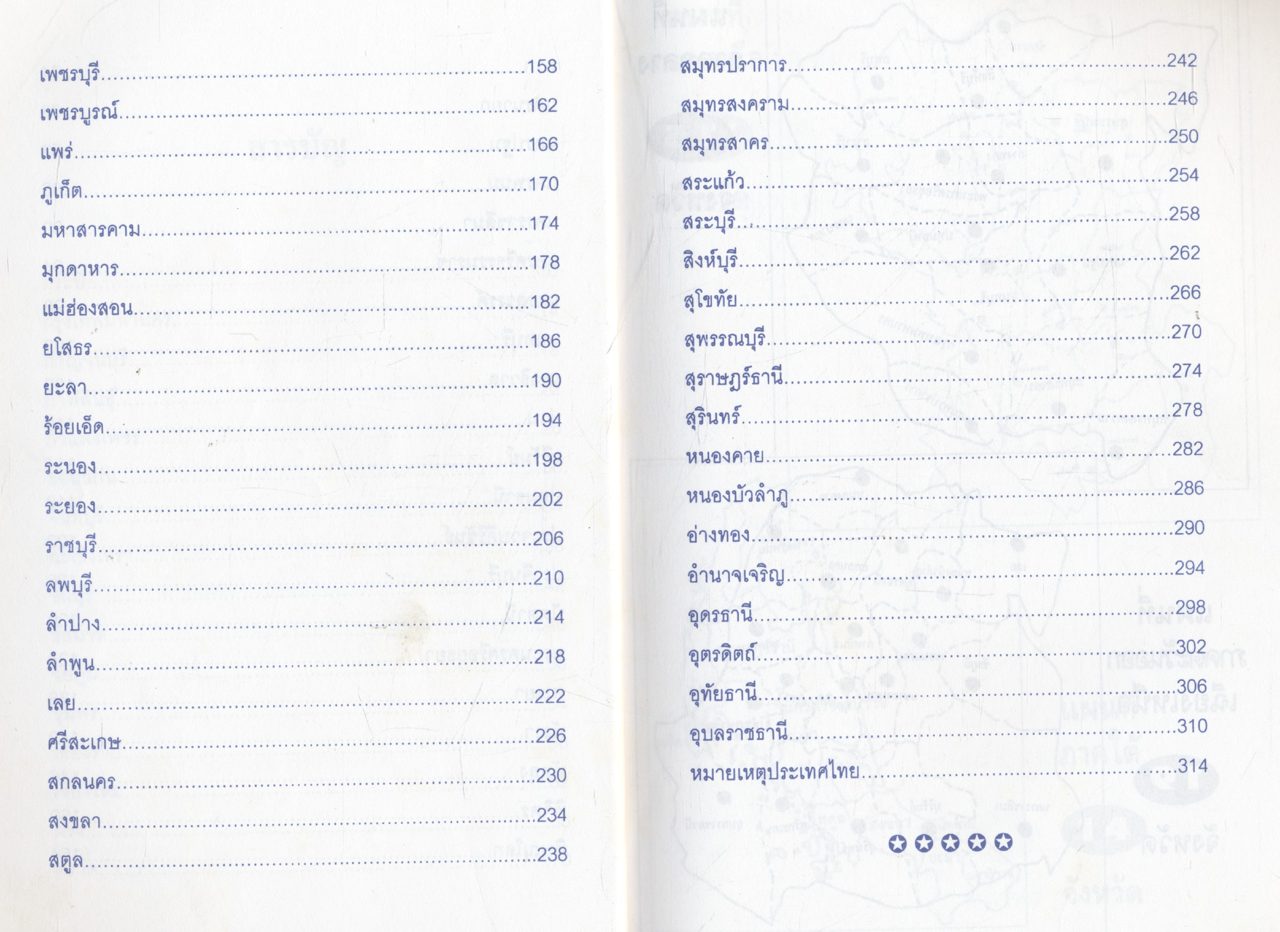 เพชรบุรี......................................................................158
เพชรบูรณ์...................................................................162
แพร่...........................................................................166
ภูเก็ต.........................................................................170
มหาสารคาม...............................................................174
มุกดาหาร...................................................................178
แม่ฮ่องสอน................................................................182
ยโสธร........................................................................186
ยะลา.........................................................................190
ร้อยเอ็ด......................................................................194
ระนอง.......................................................................198
ระยอง.......................................................................202
ราชบุรี.......................................................................206
ลพบุรี........................................................................210
ลำปาง.......................................................................214
ลำพูน........................................................................218
เลย...........................................................................222
ศรีสะเกษ...................................................................226
สกลนคร....................................................................230
สงขลา.......................................................................234
สตูล..........................................................................238
สมุทรปราการ.............................................................242
สมุทรสงคราม............................................................246
สมุทรสาคร................................................................250
สระแก้ว.....................................................................254
สระบุรี.......................................................................258
สิงห์บุรี......................................................................262
สุโขทัย......................................................................266
สุพรรณบุรี.................................................................270
สุราษฎร์ธานี..............................................................274
สุรินทร์......................................................................278
หนองคาย..................................................................282
หนองบัวลำภู..............................................................286
อ่างทอง.....................................................................290
อำนาจเจริญ...............................................................294
อุดรธานี.....................................................................298
อุตรดิตถ์....................................................................302
อุทัยธานี....................................................................306
อุบลราชธานี...............................................................310
หมายเหตุประเทศไทย..................................................314